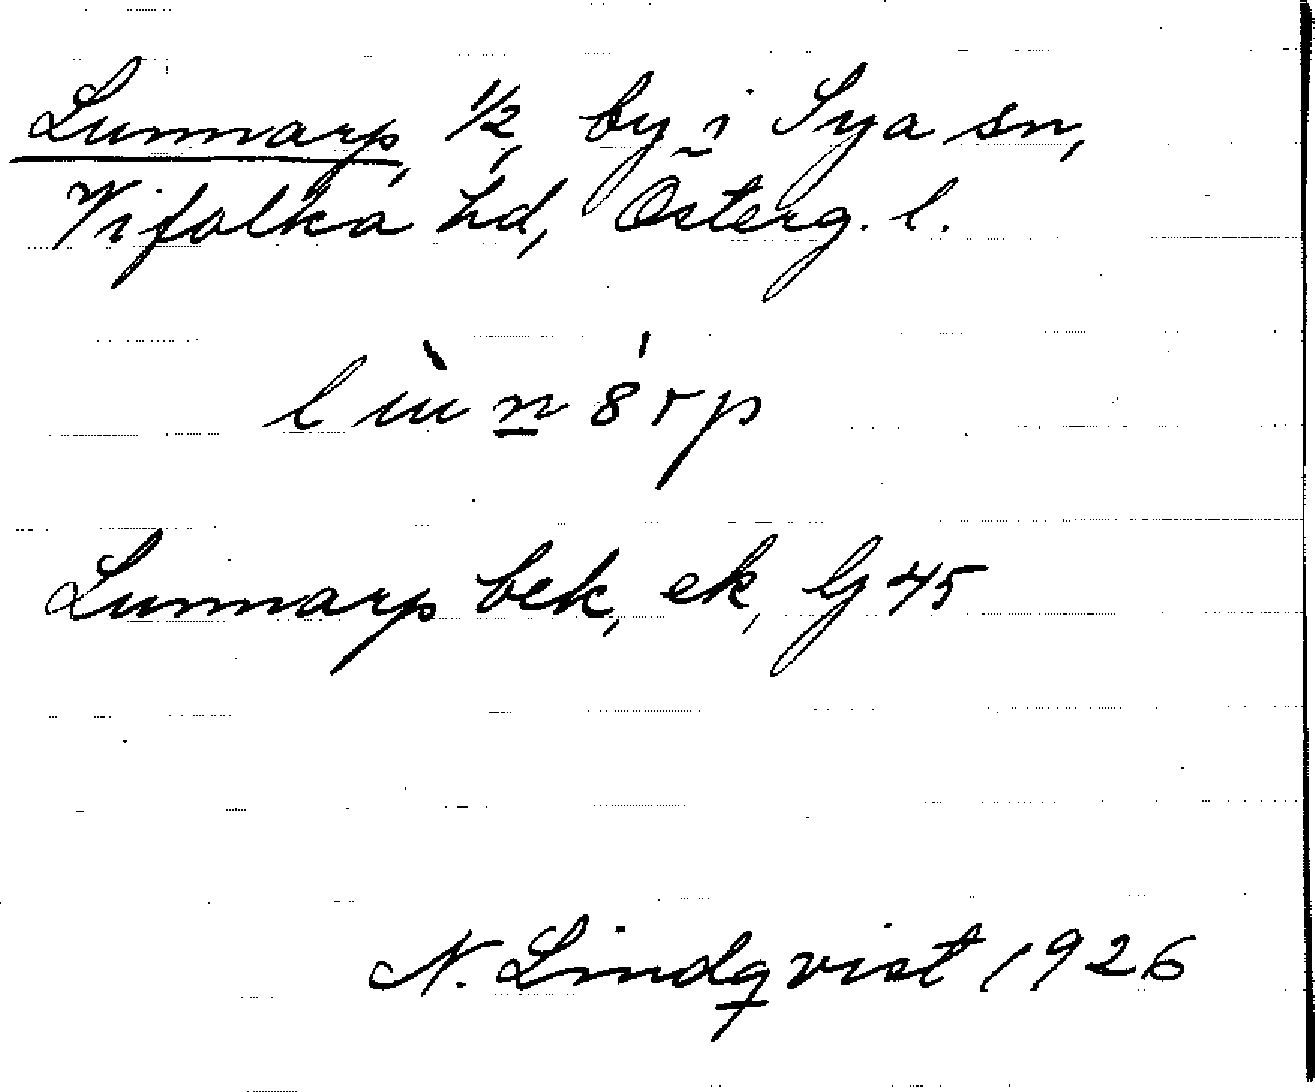 Lunnarp, 1/2, by i Sya sn,
Vifolka hd, Österg. l.
Lunnarp bek, ek, Gj 45
N. Lindqvist 1926